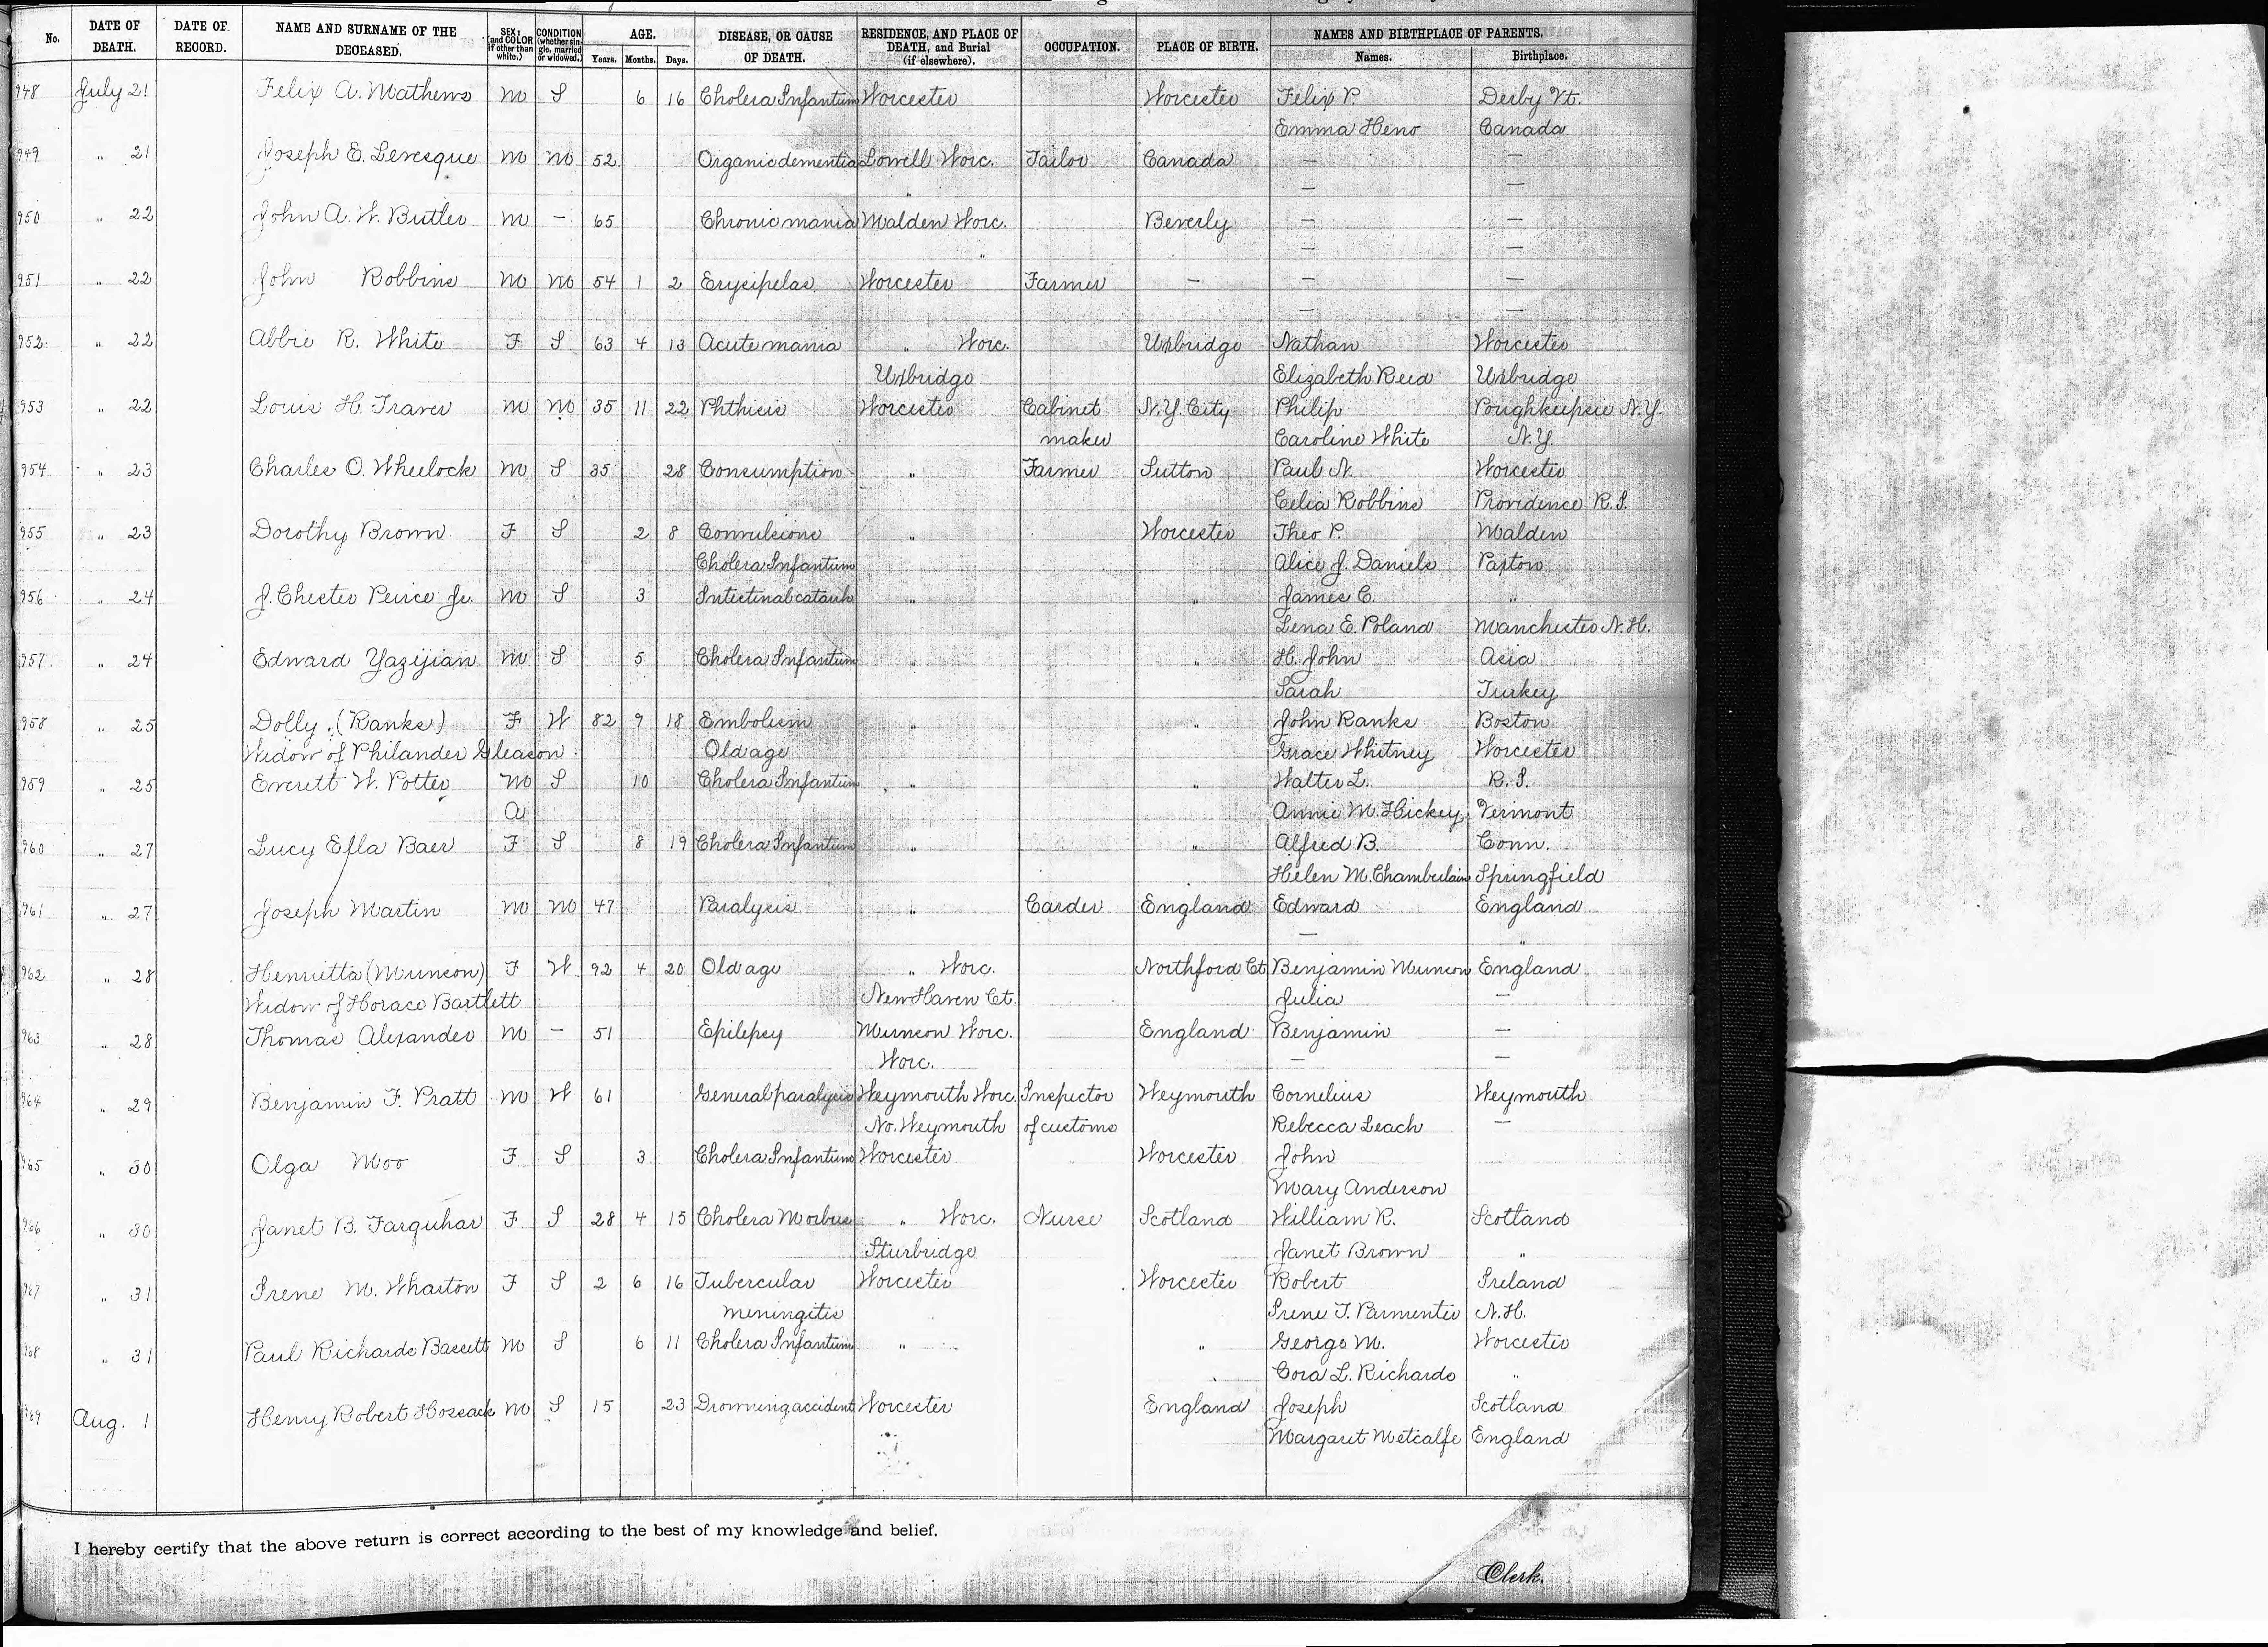 No. DATE OF DEATH. DATE OF RECORD. NAME AND SURNAME OF THE DECEASED. SEX; (and COLOR if other than white.) CONDITION (whether single, married or widowed.) AGE. Years. Months. Days. DISEASE, OR CAUSE OF DEATH. RESIDENCE, AND PLACE OF DEATH, and Burial (if elsewhere). OCCUPATION. PLACE OF BIRTH. NAMES AND BIRTHPLACE OF PARENTS. Names. Birthplace.
948 July 21 Felix A. Mathews M S 6 16 Cholera Infantum Worcester Worcester Felix P. Derby Vt.
Emma Heno Canada
949 " 21 Joseph E. Levesque M M 52. Organic dementia Lowell Worc. Tailor Canada — —
" — —
950 " 22 John A. W. Butler M — 65 Chronic mania Malden Worc. Beverly — —
" — —
951 " 22 John Robbins M M 54 1 2 Erysipelas Worcester Farmer — — —
— —
952 " 22 Abbie R. White F S 63 4 13 Acute mania " Worc. Uxbridge Nathan Worcester
Uxbridge Elizabeth Reed Uxbridge
953 " 22 Louis H. Traver M M 35 11 22 Phthisis Worcester Cabinet N.Y. City Philip Poughkeepsie N.Y.
maker Caroline White N.Y.
954 " 23 Charles O. Wheelock M S 35 28 Consumption " Farmer Sutton Paul N. Worcester
Celia Robbins Providence R.I.
955 " 23 Dorothy Brown F S 2 8 Convulsions " Worcester Theo P. Malden
Cholera Infantum Alice J. Daniels Paxton
956 " 24 J. Chester Peirce Jr. M S 3 Intestinal catarrh " " James C. "
Lena E. Poland Manchester N.H.
957 " 24 Edward Yazijian M S 5 Cholera Infantum " " H. John Asia
Sarah Turkey
958 " 25 Dolly (Ranks) F W 82 9 18 Embolism " " John Ranks Boston
Widow of Philander Gleason Old age Grace Whitney Worcester
959 " 25 Everett W. Potter M S 10 Cholera Infantum " " Walter L. R.I.
A Annie M. Hickey Vermont
960 " 27 Lucy Efla Baer F S 8 19 Cholera Infantum " " Alfred B. Conn.
Helen M. Chamberlain Springfield
961 " 27 Joseph Martin M M 47 Paralysis " Carder England Edward England
— "
962 " 28 Henrietta (Munson) F W 92 4 20 Old age " Worc. Northford Ct. Benjamin Munson England
Widow of Horace Bartlett New Haven Ct. Julia —
963 " 28 Thomas Alexander M — 51 Epilepsy Munson Worc. England Benjamin —
Worc. — —
964 " 29 Benjamin F. Pratt M W 61 General paralysis Weymouth Worc. Inspector Weymouth Cornelius Weymouth
No. Weymouth of customs Rebecca Leach —
965 " 30 Olga Moo F S 3 Cholera Infantum Worcester Worcester John
Mary Anderson
966 " 30 Janet B. Farquhar F S 28 4 15 Cholera Morbus " Worc. Nurse Scotland William R. Scotland
Sturbridge Janet Brown "
967 " 31 Irene M. Wharton F S 2 6 16 Tubercular Worcester Worcester Robert Ireland
meningitis Irene T. Parmenter N.H.
968 " 31 Paul Richards Bassett M S 6 11 Cholera Infantum " " George M. Worcester
Cora L. Richards "
969 Aug. 1 Henry Robert Hossack M S 15 23 Drowning accident Worcester England Joseph Scotland
Margaret Metcalfe England
I hereby certify that the above return is correct according to the best of my knowledge and belief.
Clerk.